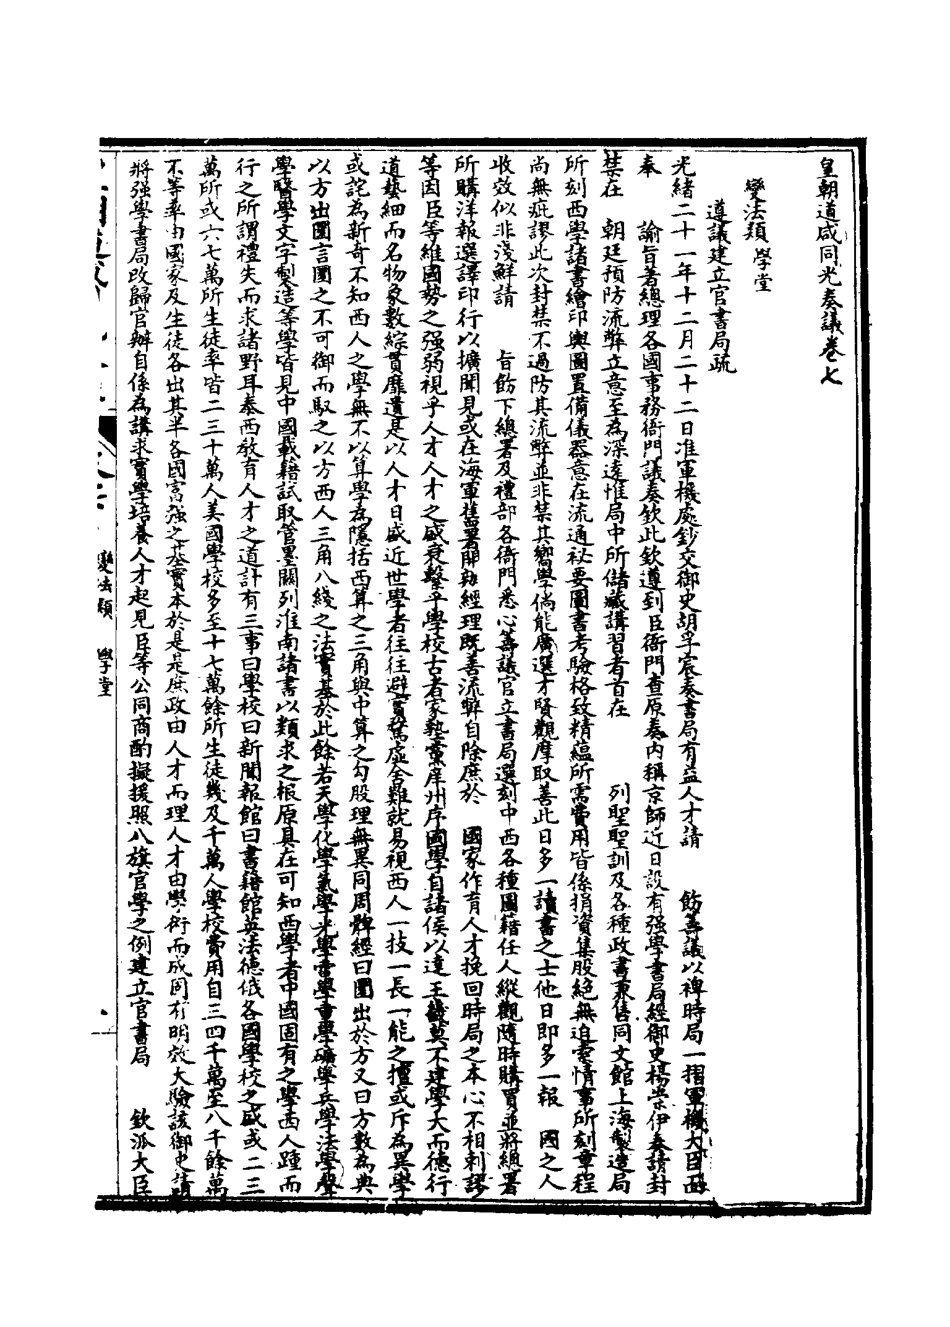 皇朝道咸同光奏議卷七
變法類 學堂
遵議建立官書局疏
光緒二十一年十二月二十二日准軍機處鈔交御史胡孚宸奏書局有益人才請 飭籌議以裨時局一摺軍機大臣面
奉 諭旨著總理各國事務衙門議奏欽此欽遵到臣衙門查原奏內稱京師近日設有强學書局經御史楊崇伊奏請封
禁在 朝廷預防流弊立意至為深遠惟局中所儲藏講習者首在 列聖聖訓及各種政書兼售同文館上海製造局
所刻西學諸書繪印輿圖置備儀器意在流通祕要圖書考驗格致精蘊所需費用皆係捐資集股絕無迫索情事所刻章程
尚無疵謬此次封禁不過防其流弊並非禁其嚮學倘能廣選才賢觀摩取善此日多一讀書之士他日即多一報 國之人
收效似非淺鮮請 旨飭下總署及禮部各衙門悉心籌議官立書局選刻中西各種圖籍任人縱觀隨時購買並將總署
所購洋報選譯印行以擴聞見或在海軍舊署開辦經理既善流弊自除庶於 國家作育人才挽回時局之本心不相剌謬
等因臣等維國勢之强弱視乎人才人才之盛衰繫乎學校古者家塾黨庠州序國學自諸侯以達王畿莫不建學大而德行
道藝細而名物象數綜貫靡遺是以人才日盛近世學者往往避實騖虛舍難就易視西人一技一長一能之擅或斥為異學
或詫為新奇不知西人之學無不以算學為隱括西算之三角與中算之勾股理無異同周髀經曰圜出於方又曰方數為典
以方出圜言圜之不可御而馭之以方西人三角八綫之法實基於此餘若天學化學氣學光學電學重學礦學兵學法學聲
學醫學文字製造等學皆見中國載籍試取管墨關列淮南諸書以類求之根原具在可知西學者中國固有之學西人踵而
行之所謂禮失而求諸野耳泰西教育人才之道計有三事曰學校曰新聞報館曰書籍館英法德俄各國學校之盛或二三
萬所或六七萬所生徒率皆二三十萬人美國學校多至十七萬餘所生徒幾及千萬人學校費用自三四千萬至八千餘萬
不等率由國家及生徒各出其半各國富强之基實本於是是庶政由人才而理人才由學術而成固有明效大驗該御史請
將强學書局改歸官辦自係為講求實學培養人才起見臣等公同商酌擬援照八旗官學之例建立官書局 欽派大臣
變法類 學堂
一